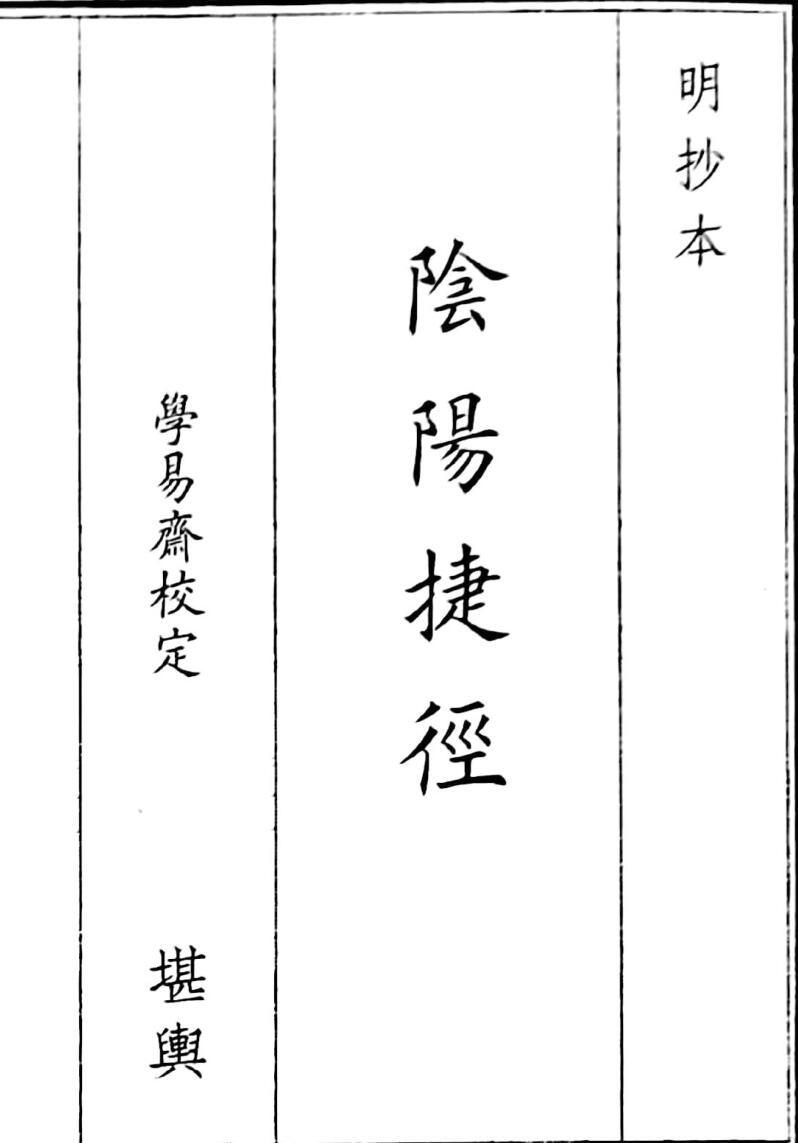 明抄本
陰陽捷徑
學易齋校定
堪輿